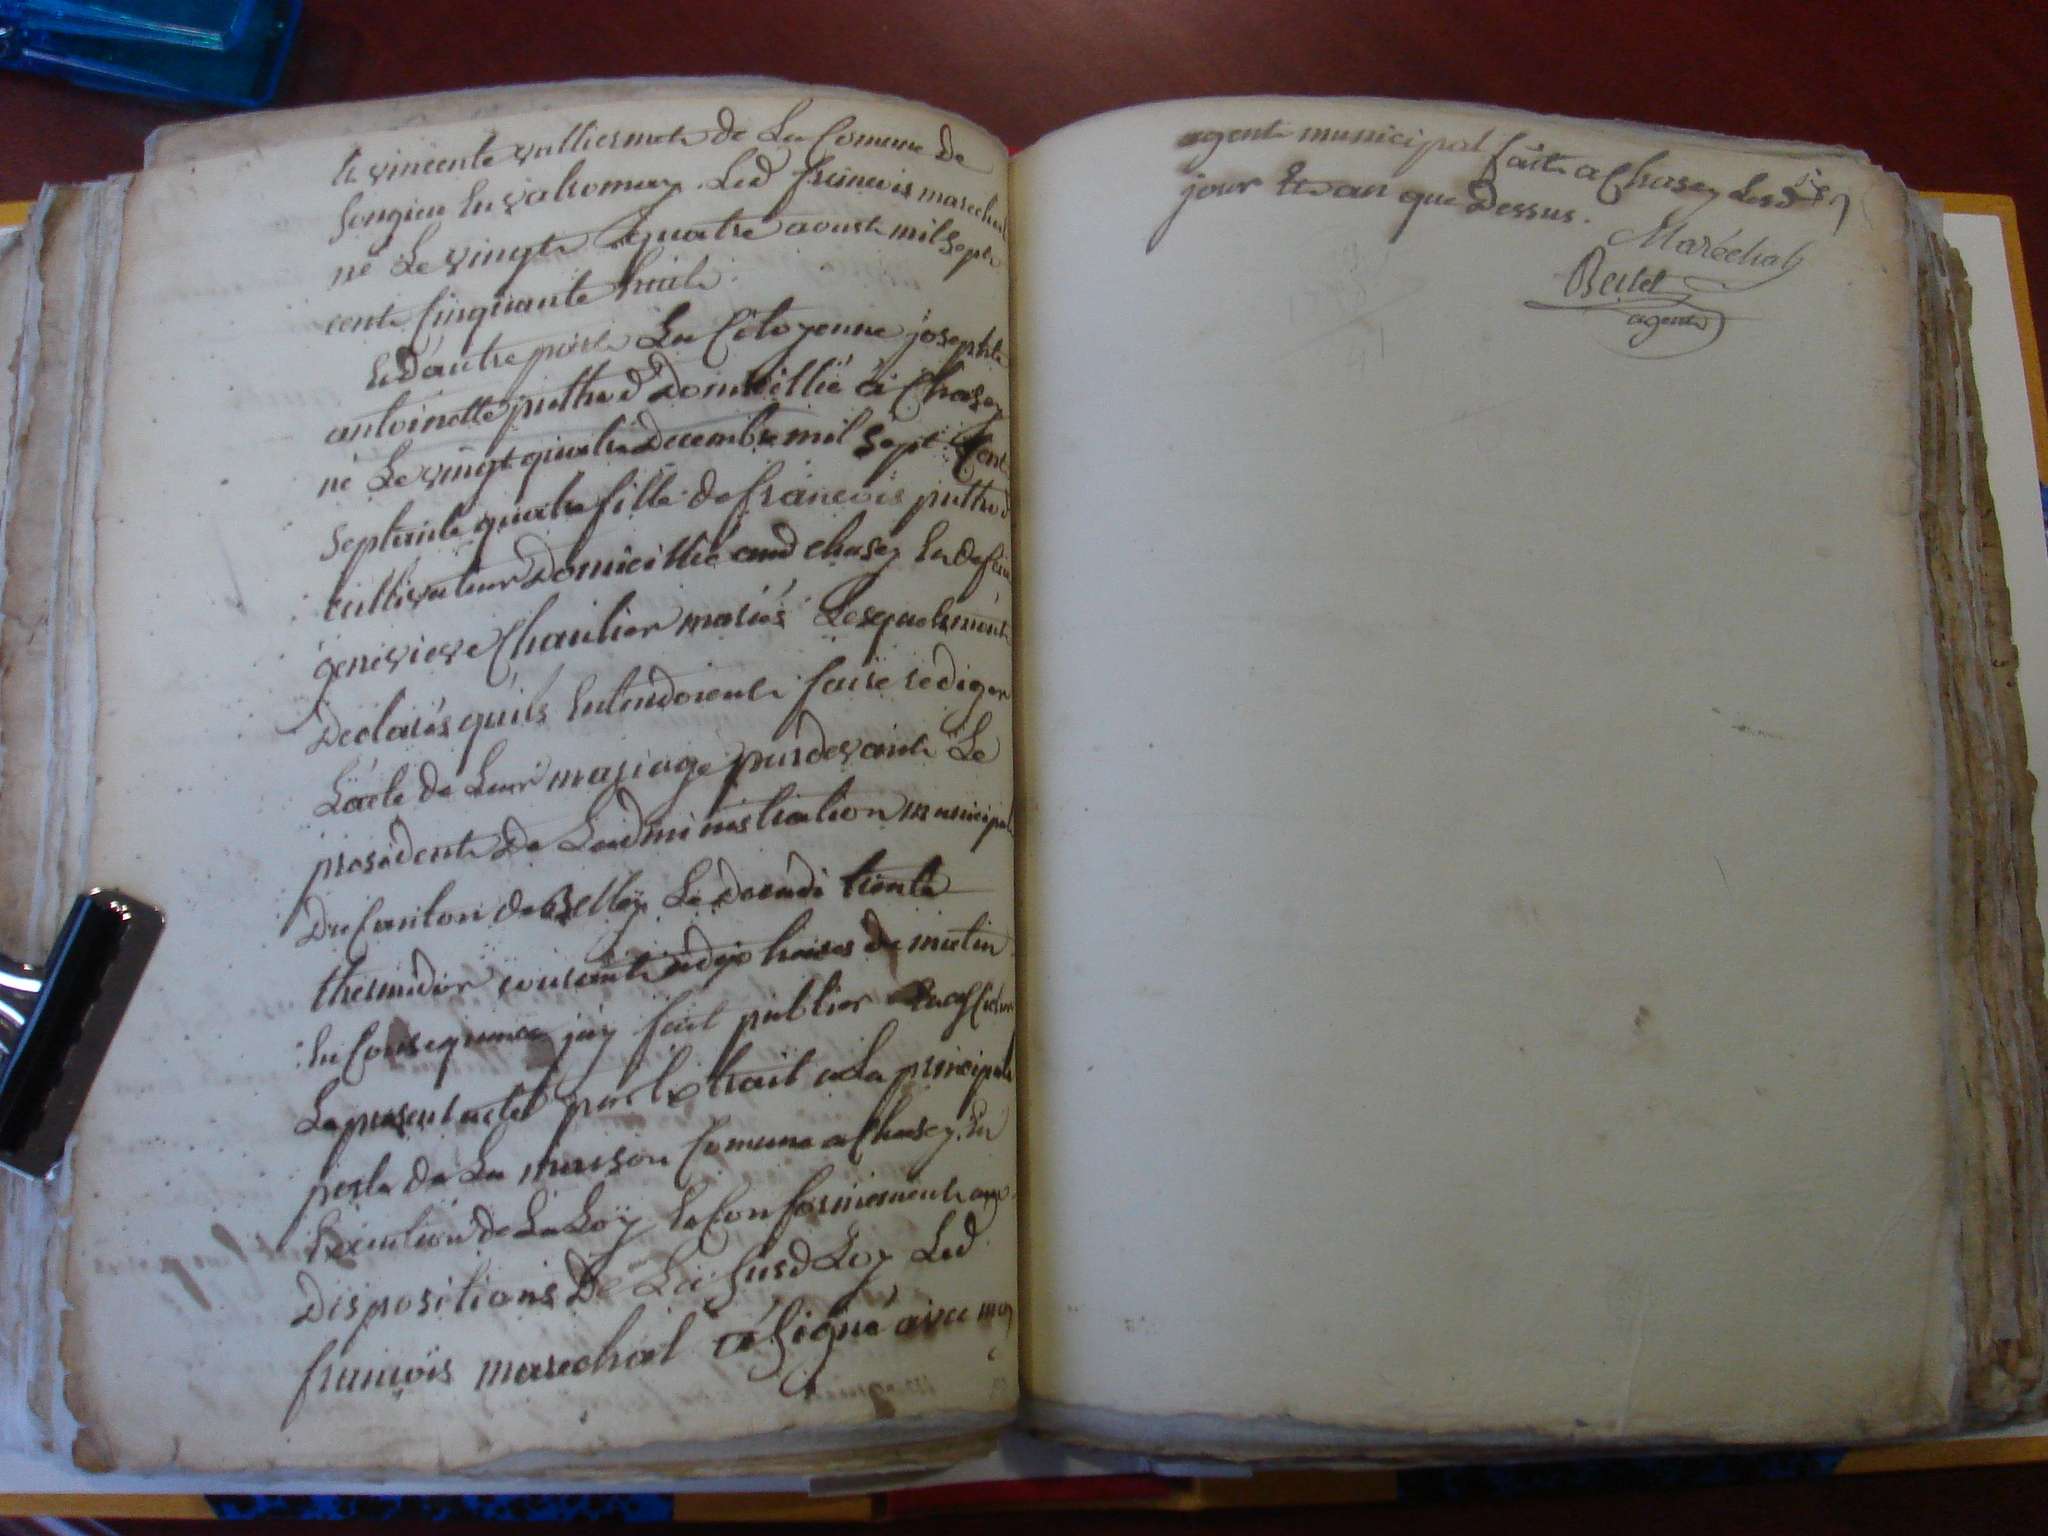 et vincente valliermet de La Comune de
Songieu En valromey. Led françois marechal
né Le vingt quatre aoust mil sept
cent Cinquante huit.
Et D'autre part La Citoyenne josephte
antoinette puthod Domicillié à Chasey
né Le vingt quatre Decembre mil Sept Cent
Septante quatre fille de françois puthod
cultivateur Domicillié aud chasey Et de feüe
genevieve Chaulier mariés Lesquels m'ont
Declarés qu'ils Entendoient faire rediger
L'acte de Leur mariage pardevant Le
president De Ladministration municipale
Du Canton de Belley Le decadi trente
thermidor courant à dix heures de matin
En Consequence j'ay fait publier Et afficher
Le present acte par Extrait a La principale
porte de La maison Comune a Chasey. En
Execution de La Loÿ Et Conformement aux
Dispositions De La Susd Loy Led
françois marechal à Signé avec moy
agent municipal fait a Chasey Lesd
jour Et an que Dessus.
Maréchal
Berlet
agent